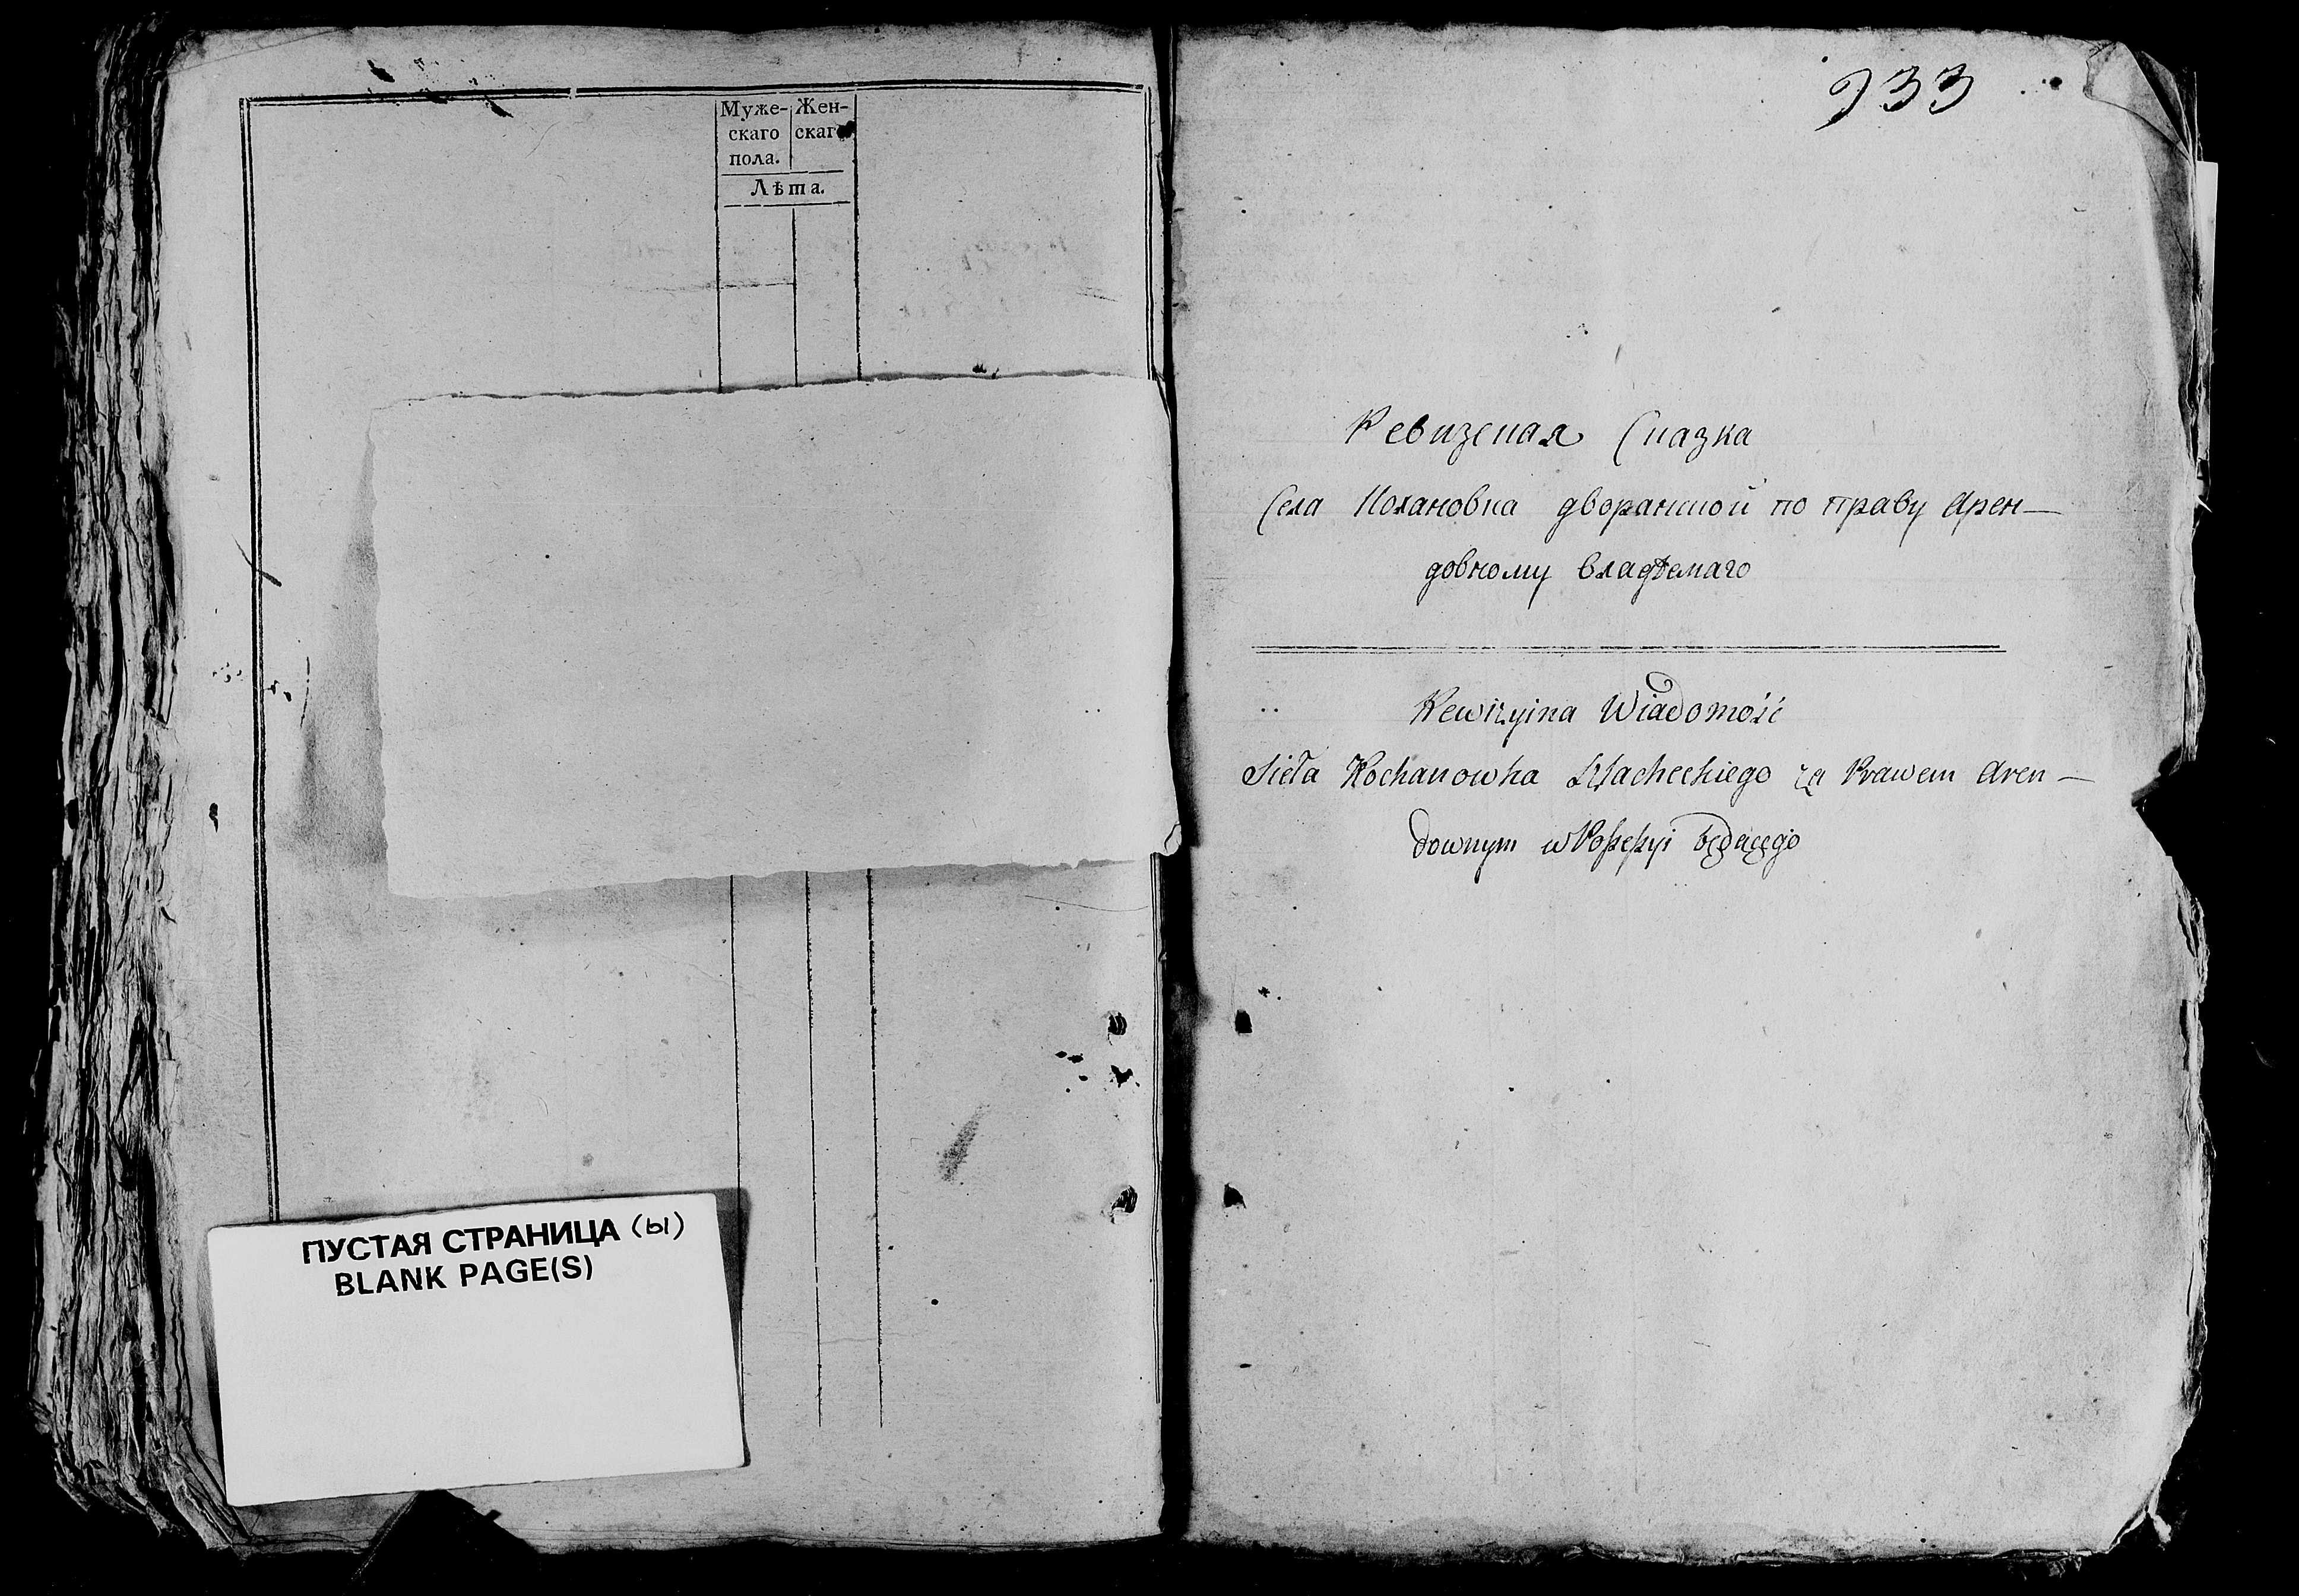 Муже- Жен-
скаго скаго
пола.
Лѣта.
ПУСТАЯ СТРАНИЦА (ы)
BLANK PAGE(S)
933
Ревизская Сказка
Села Кохановка дворанской по праву Арен-
довному владѣемаго
Rewizyina Wiadomość
Sieła Kochanowka Szlacheckiego za Prawem Aren-
downym w Possessyi będącego